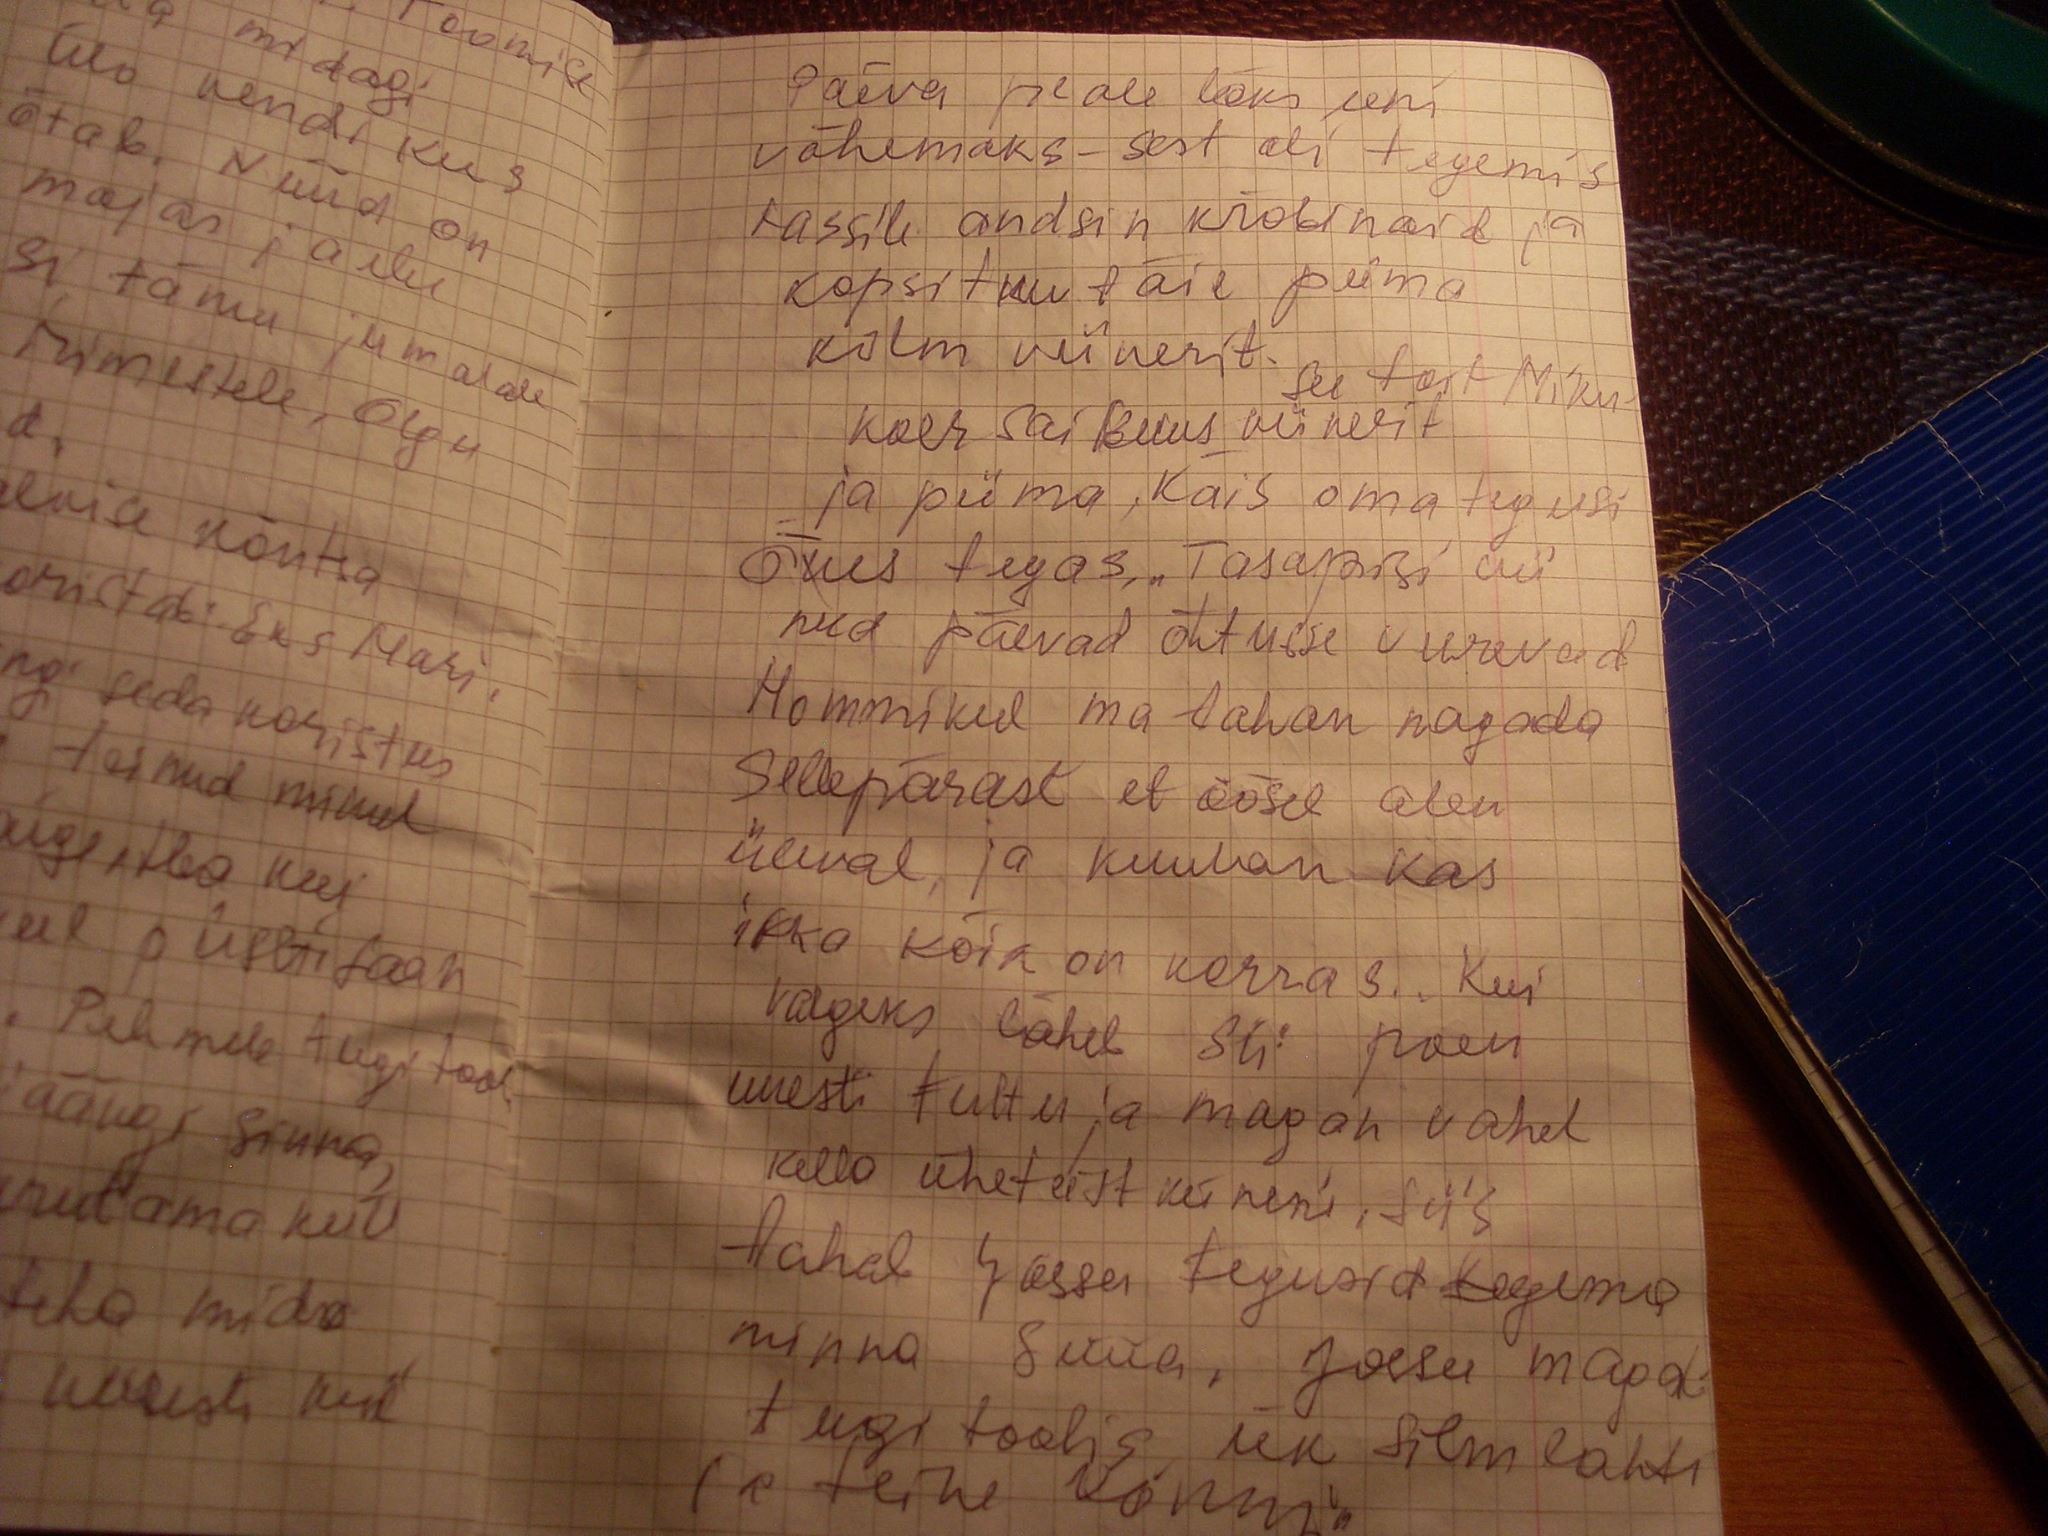 Toomise
midagi
Ülo vendikus
õtab. Nüüd on
majas ja elu
si, tänu jumalale
inimestele, Olgu
d.
kõntsa
koristab. Eks Mari.
seda koristus
teinud minul
kui
püsti saan
. Pehmele tugitool
jäängi sinna,
teha mida
uuesti
Päeva peale läks uni
vähemaks - sest oli tegemis
kassile andsin krõbinaid ja
kopsitku täie piima
kolm viinerit.
see tõit Miku
koer sai kuus viinerit
ja piima, Käis oma tegusi
Õues tegas,, Tasapisi vii
nud päevad õhtusse veerevad
Hommikul ma tahan magada
Sellepärast et öösel olen
üleval, ja kuulan kas
ikka kõik on korras.. Kui
valgeks läheb siis poen
uuesti tuttu ja magan vahel
kella üheteistkümneni, siis
tahab Jossu tegusid tegema
minna Süüa, Jossu magab
tugitoolis ük silm lahti
ja teine kinni"